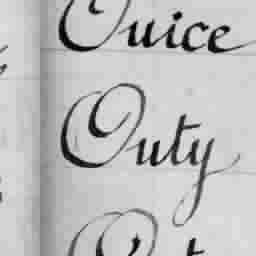 Ouice
Outy